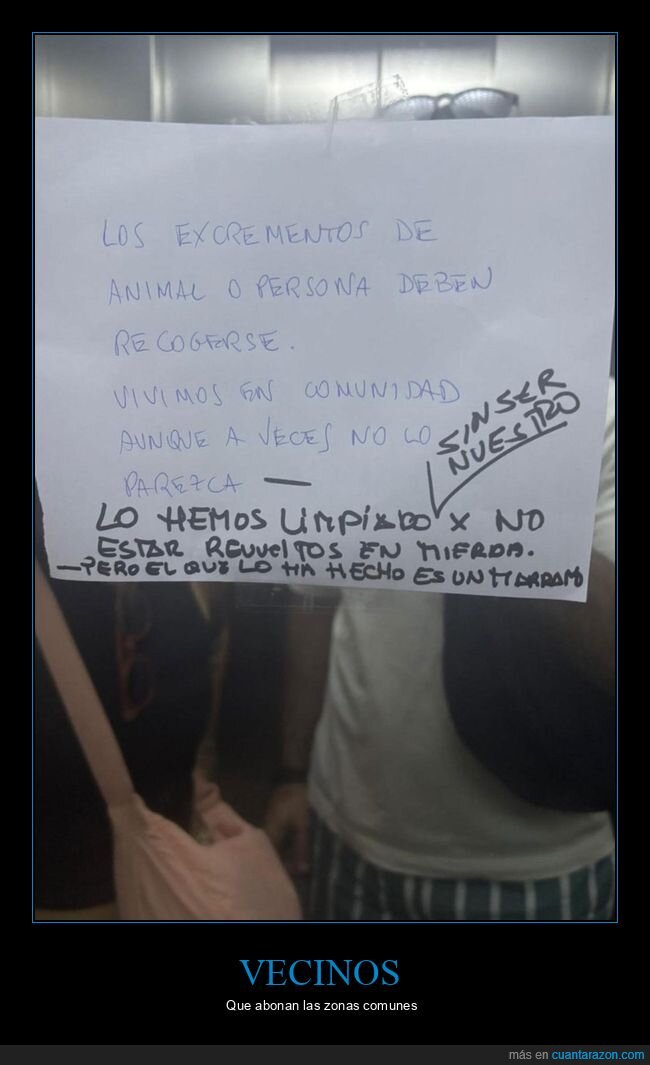 LOS EXCREMENTOS DE
ANIMAL O PERSONA DEBEN
RECOGERSE.
VIVIMOS EN COMUNIDAD
AUNQUE A VECES NO LO
PAREZCA —
SIN SER
NUESTRO
LO HEMOS LIMPIADO X NO
ESTAR REVUELTOS EN MIERDA.
— PERO EL QUE LO HA HECHO ES UN MARRANO
VECINOS
Que abonan las zonas comunes
más en cuantarazon.com